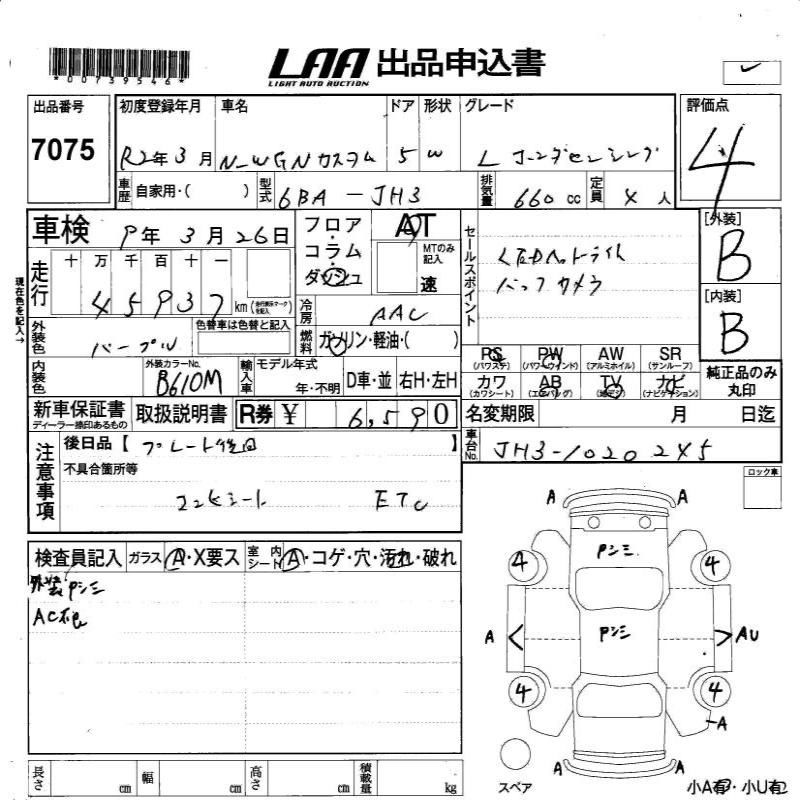 *00739546*
LAA 出品申込書
LIGHT AUTO AUCTION
出品番号
7075
初度登録年月 車名 ドア 形状 グレード
R2年3月 N-WGNカスタム 5 W L ホンダセンシング
評価点
4
車歴 自家用・( ) 型式 6BA-JH3 排気量 660cc 定員 4人
車検 9年3月26日
フロア・コラム・ダッシュ
AT
MTのみ記入
速
セールスポイント
LEDヘッドライト
バックカメラ
[外装]
B
[内装]
B
現在色を記入→
走行 十 万 千 百 十 一
45937 km (走行表示マーク)を記入
冷房 AAC
外装色 パープル
色替車は色替と記入
燃料 ガソリン・軽油・( )
PS PW AW SR
(パワステ) (パワーウインド) (アルミホイル) (サンルーフ)
カワ AB TV ナビ
(カワシート) (エアバッグ) (地デジ) (ナビゲーション)
純正品のみ丸印
内装色
外装カラーNo.
B610M
輸入車 モデル年式
年・不明 D車・並 右H・左H
新車保証書
ディーラー捺印あるもの
取扱説明書 R券 ¥ 6,590
名変期限 月 日迄
車台No. JH3-1020245
注意事項
後日品【 プレート後回 】
不具合箇所等
コンビシート ETC
ロック車
検査員記入 ガラス A・X要ス 室内シート A・コゲ・穴・汚れ・破れ
外装Pシミ
AC不良
A A
Pシミ
4 4
A Pシミ AU
4 4
A
A A
スペア
小A有・小U有
長さ cm 幅 cm 高さ cm 積載量 kg